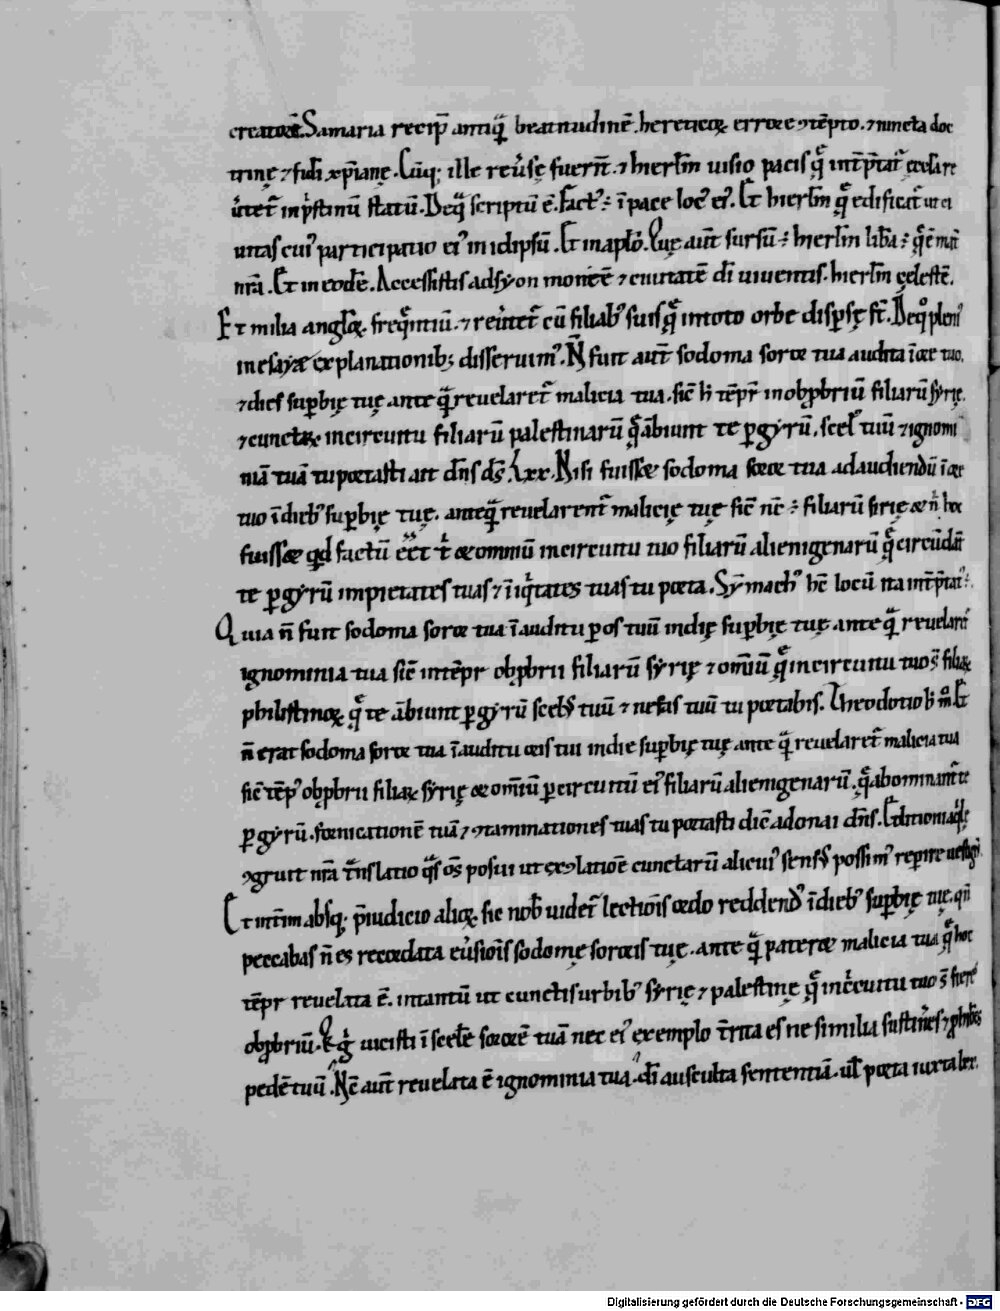 creatorē. Samaria recip̄ antiquā beatitudinē. hereticoꝝ errore ↄtēpto. ⁊ iuncta doc
trinę ⁊ fidi xp̄ianę. Cūq; ille reuersę fuerīt. ⁊ hierlm̄ uisio pacis quę int̄p̄tat᷑ cessare
ut̄et᷑ in p̄stinū statū. Deq̄ scriptū ē. Factꝰ ÷ ī pace locꝰ eiꝰ. Et hierlm̄ quę edificat᷑ ut ci
uitas cuiꝰ participatio eiꝰ in idipsū. Et in aplō. Quę aut̄ sursū ÷ hierlm̄ libā ÷ quę ē mat̄
nr̄a. Et in eodē. Accessistis ad syon montē ⁊ ciuitatē dī uiuentis. hierlm̄ cęlestē.
Et milia angloꝝ frequentiū. ⁊ reūtet᷑ cū filiabꝰ suis quę in toto orbe dispersę st̄. De quo pleniꝰ
in esayæ explanationib; disseruimꝰ. Ñ fuit aut̄ sodoma soror tua audita ī ore tuo.
⁊ dies supbię tuę ante quā reuelaret᷑ malicia tua. sic̄ h̄ tēpr̄ in obprbriū filiarū syrię.
⁊ cunctaꝝ in circuitu filiarū palestinarū quę ābiunt te p gyrū. scelꝰ tuū ⁊ ignomi
niā tuā tu portasti ait dn̄s ds̄. Lxx. Nisi fuisset sodoma soror tua ad audiendū ī ore
tuo ī diebꝰ supbię tuę. ante quā reuelarent᷑ malicię tuę sic̄ nc̄ ÷ filiarū sirię et n̄ hoc
fuisset qd factū ēēt t̄ et omniū in circuitu tuo filiarū alienigenarū quę circūdāt
te p gyrū impietates tuas ⁊ iniqtates tuas tu porta. Sȳmachꝰ hc̄ locū ita int̄p̄tat᷑.
Quia n̄ fuit sodoma soror tua ī auditu p os tuū in dię supbię tuę ante quā reuelaret᷑
ignominia tua sic̄ in tēpr obprbrii filiarū syrię ⁊ om̄iū quę in circuitu tuo s̄ filiaꝝ
philistinoꝝ quę te ābiunt p gyrū scelꝰ tuū ⁊ nefas tuū tu portabis. Theodotio h̄ mꝰ. Et
n̄ erat sodoma soror tua ī auditu oris tui in die supbię tuę ante quā reuelaret᷑ malicia tua
sic̄ tēpꝰ obprbrii filiaꝝ syrię et om̄iū p circuitū eiꝰ filiarū alienigenarū. quę abominant᷑ te
p gyrū. fornicationē tuā ⁊ ↄtaminationes tuas tu portasti dic̄ adonai dn̄s.
ↄgruit nr̄a t̄nslatio quas oꝰ posui ut ex ↄlatiōe cunctarū alicuiꝰ sensꝰ possimꝰ reperire uestigia
Et int̄im absq; p̄iudicio alioꝝ sic nob̄ uidet᷑ lectiōis ordo reddendꝰ ī diebꝰ supbię tuę. qn̄
peccabas n̄ es recordata euersiōis sodomę sororis tuę. ante quā pateret malicia tua quę hoc
tēpr reuelata ē. intantū ut cunctis urbibꝰ syrię ⁊ palestinę quę in circuitu tuo s̄ fieres
obprbriū. uicisti ī scelē sororē tuā nec eiꝰ exemplo t̄rita es ne similia sustineres ⁊
pedē tuū. Nc̄ aut̄ reuelata ē ignominia tua. dī ausculta sententiā. ul̄ porta iuxta lxx.
Digitalisierung gefördert durch die Deutsche Forschungsgemeinschaft - DFG